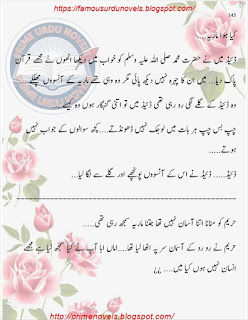 https://famousurdunovels.blogspot.com/
145
کیا ہوا ماریہ ...
ڈیڈ میں نے حضرت محمد صلی اللہ علیہ وسلم کو خواب میں دیکھا انھوں نے مجھے قرآن
پاک دیا... میں ان کا چہرہ نہیں دیکھ پائی مگر وہ وہی تھے ماریہ کے آنسوؤں چھلکے....
وہ ڈیڈ کے گلے لگی رو رہی تھی ڈیڈ میں تو اتنی گنہگار ہوں وہ کیسے
چپ بس چپ ہر بات میں لوجک نہیں ڈھونڈتے....کچھ سوالوں کے جواب نہیں
ہوتے.....
ڈیڈ...... ڈیڈ نے اس کے آنسوؤں پونچھے اور گلے سے لگا لیا...
حریم کو منانا اتنا آسان نہیں تھا جتنا ماریہ سمجھ رہی تھی.....
حریم نے رو رو کے آسمان سر پہ اٹھا لیا تھا....اماں ابا آپ نے کیا سمجھ لیا ہے مجھے
انسان نہیں ہوں کیا میں....؟؟
http://primenovels.blogspot.com/